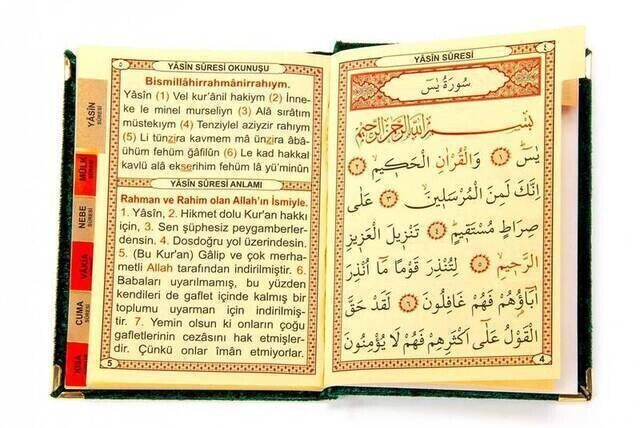 ٥
YÂSÎN SÛRESİ OKUNUŞU
Bismillâhirrahmânirrahıym.
Yâsîn (1) Vel kur'ânil hakiym (2) İnne-
ke le minel murseliyn (3) Alâ sırâtım
müstekıym (4) Tenziylel aziyzir rahıym
(5) Li tünzira kavmem mâ ünzira âbâ-
ühüm fehüm ğâfilûn (6) Le kad hakkal
kavlü alâ ekserihim fehüm lâ yü'minûn
YÂSÎN SÛRESİ ANLAMI
Rahman ve Rahim olan Allah'ın İsmiyle.
1. Yâsîn, 2. Hikmet dolu Kur'an hakkı
için, 3. Sen şüphesiz peygamberler-
densin. 4. Dosdoğru yol üzerindesin.
5. (Bu Kur'an) Gâlip ve çok merha-
metli Allah tarafından indirilmiştir. 6.
Babaları uyarılmamış, bu yüzden
kendileri de gaflet içinde kalmış bir
toplumu uyarman için indirilmiş-
tir. 7. Yemin olsun ki onların çoğu
gafletlerinin cezasını hak etmişler-
dir. Çünkü onlar îmân etmiyorlar.
5
YÂSÎN SÛRESİ
MÜLK SÛRESİ
NEBE SÛRESİ
VÂKIA
CUMA SÛRESİ
YÂSÎN SÛRESİ
٤
سُورَةُ يٰسٓ
بِسْمِ اللّٰهِ الرَّحْمٰنِ الرَّحِيمِ
يٰسٓ ﴿١﴾ وَالْقُرْاٰنِ الْحَكِيمِ ﴿٢﴾
اِنَّكَ لَمِنَ الْمُرْسَلِينَ ﴿٣﴾ عَلٰى
صِرَاطٍ مُسْتَقِيمٍ ﴿٤﴾ تَنْزِيلَ الْعَزِيزِ
الرَّحِيمِ ﴿٥﴾ لِتُنْذِرَ قَوْمًا مَٓا اُنْذِرَ
اٰبَٓاؤُهُمْ فَهُمْ غَافِلُونَ ﴿٦﴾ لَقَدْ حَقَّ
الْقَوْلُ عَلٰٓى اَكْثَرِهِمْ فَهُمْ لَا يُؤْمِنُونَ
4